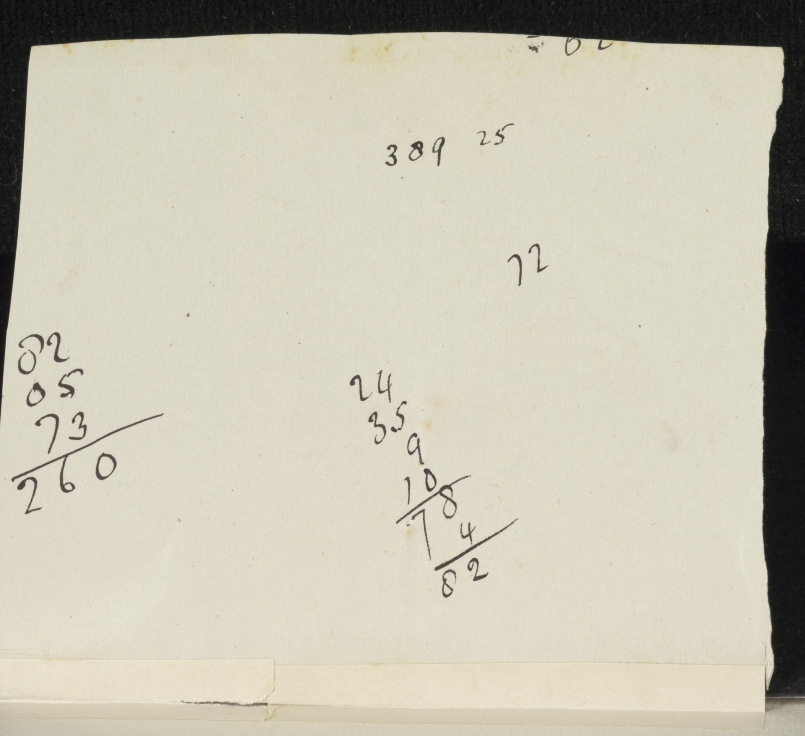 389 25
72
82
05
73
260
24
35
9
10
78
4
82